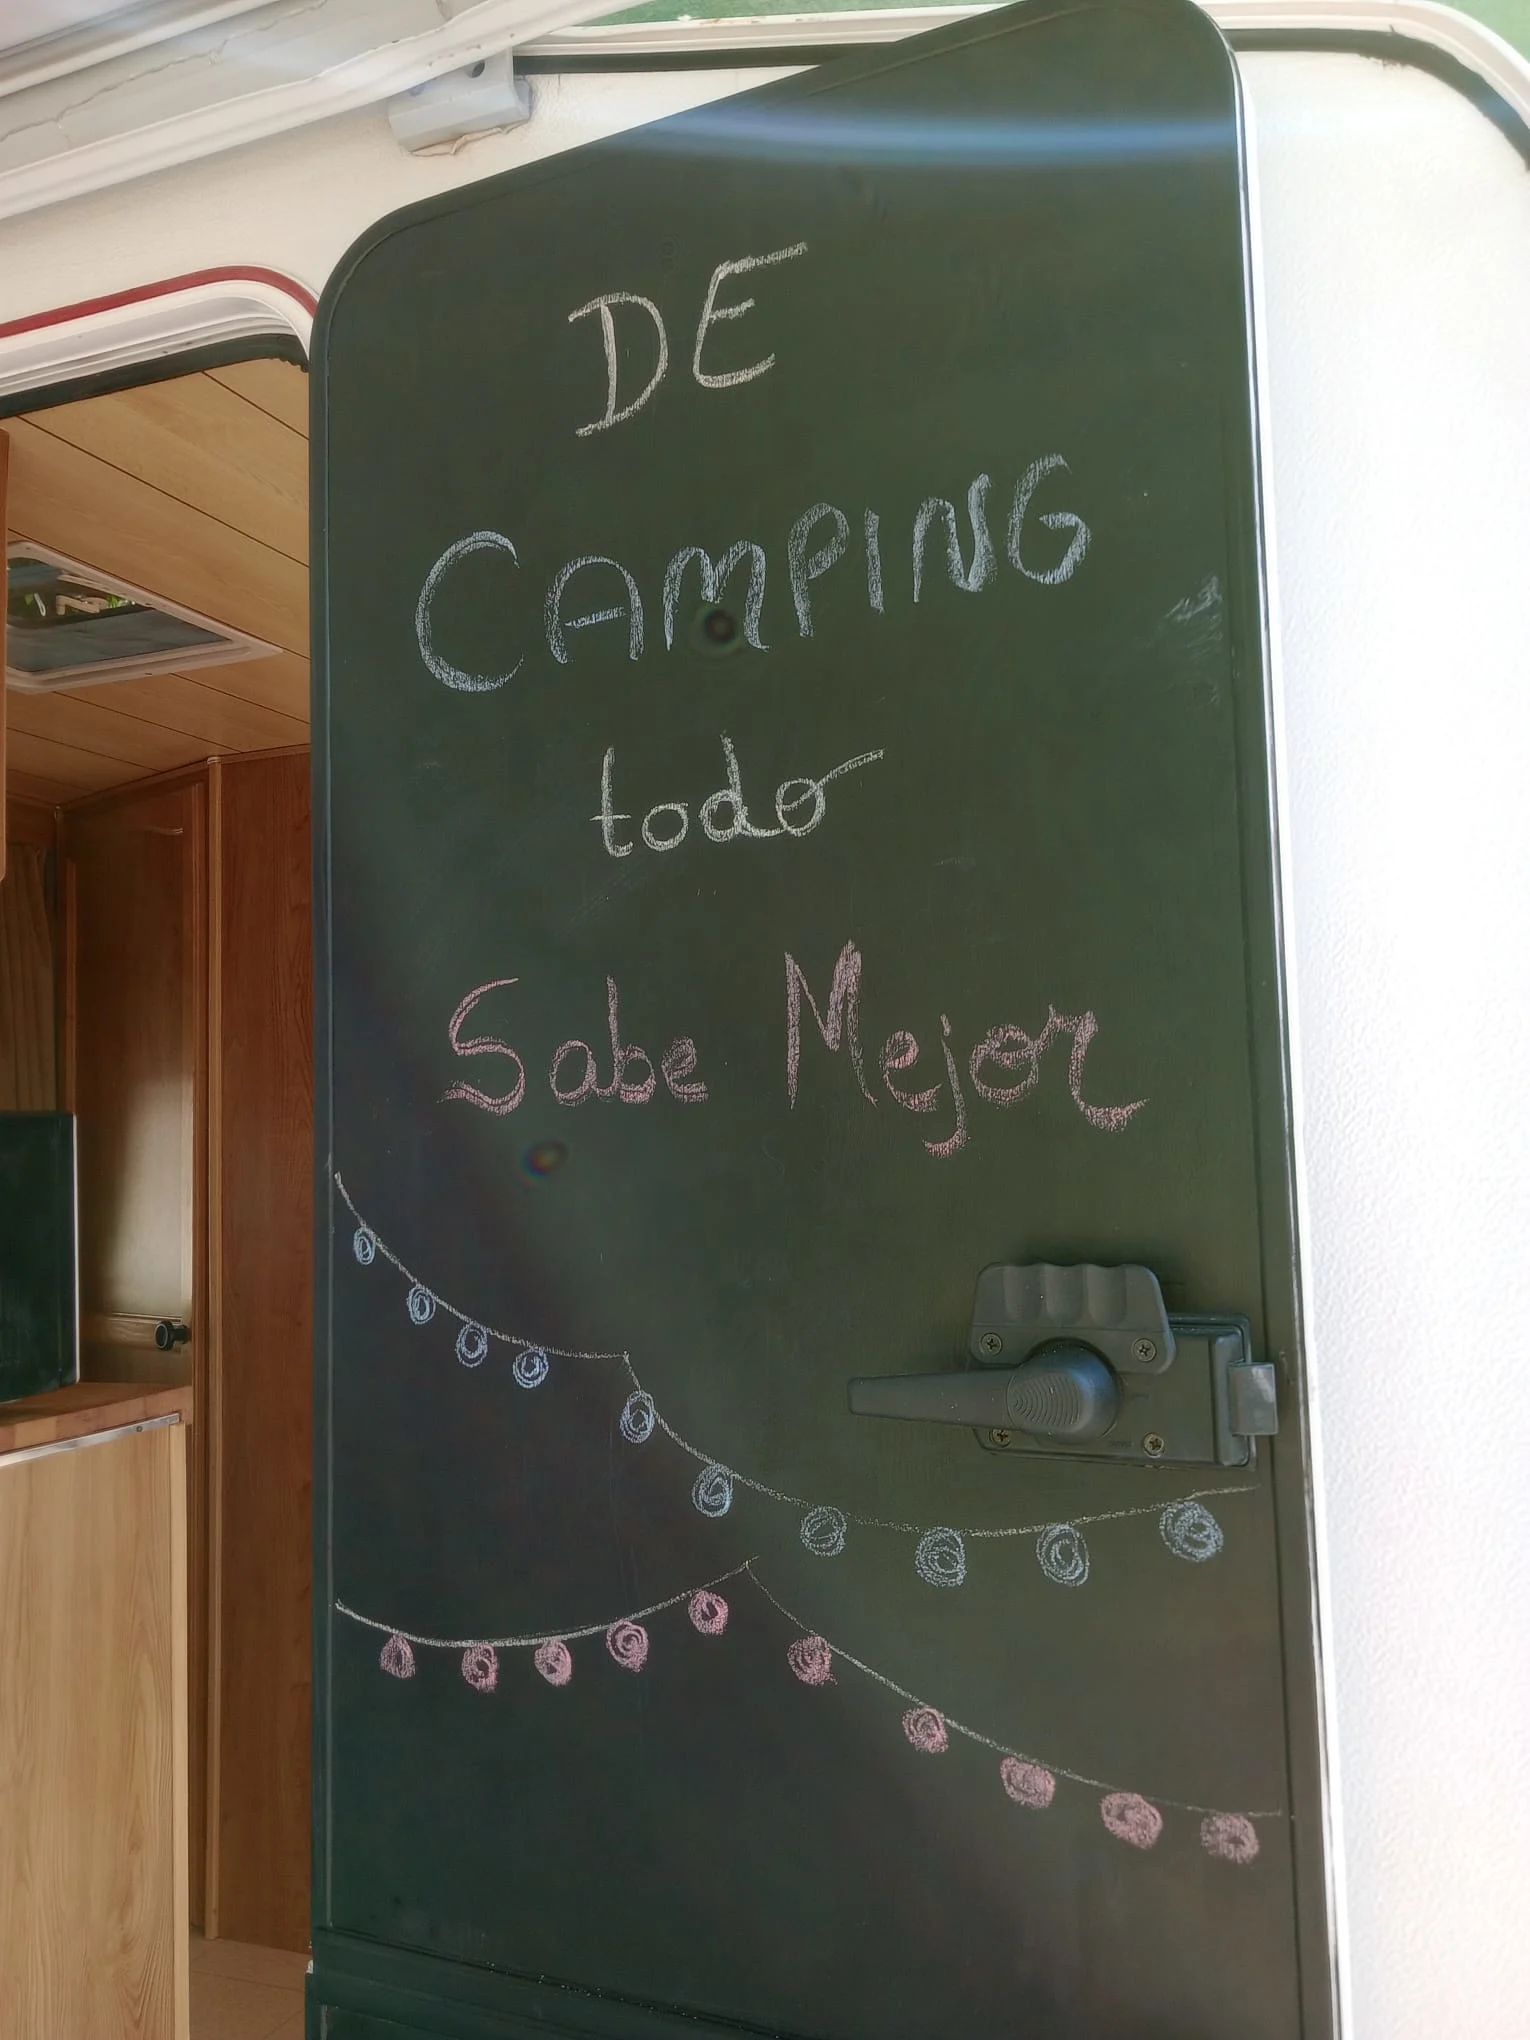 DE
CAMPING
todo
Sabe Mejor